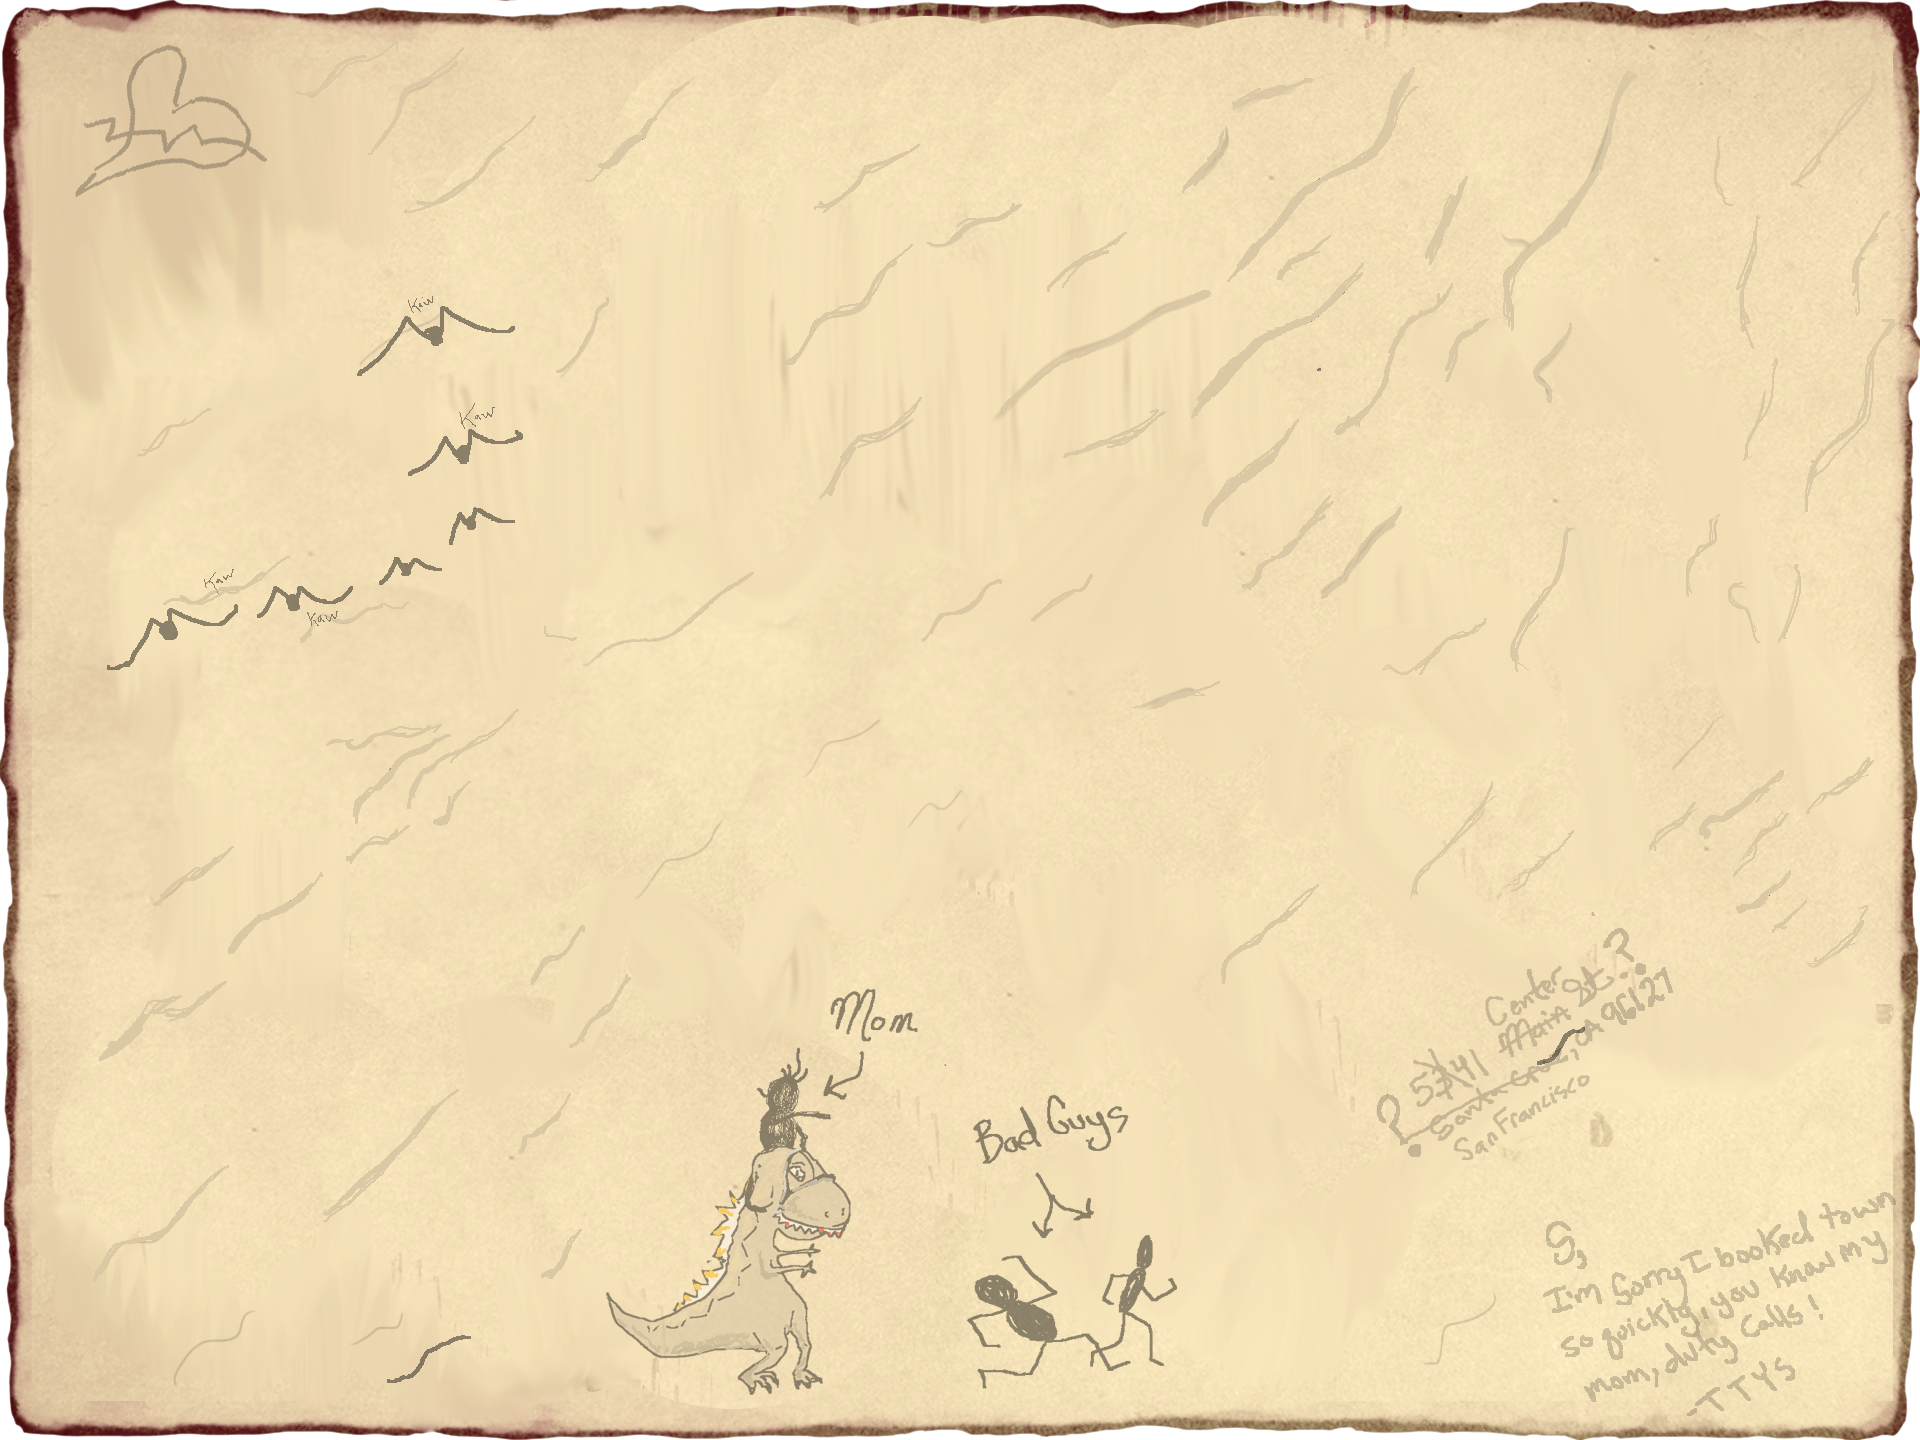 Kaw
Kaw
Kaw
Kaw
Mom
Bad Guys
? Center ?
5741 Main St.
Santa Cruz, CA 96627
San Francisco
S,
I'm Sorry I booked town
so quickly, you know my
mom, duty calls!
-TTYS